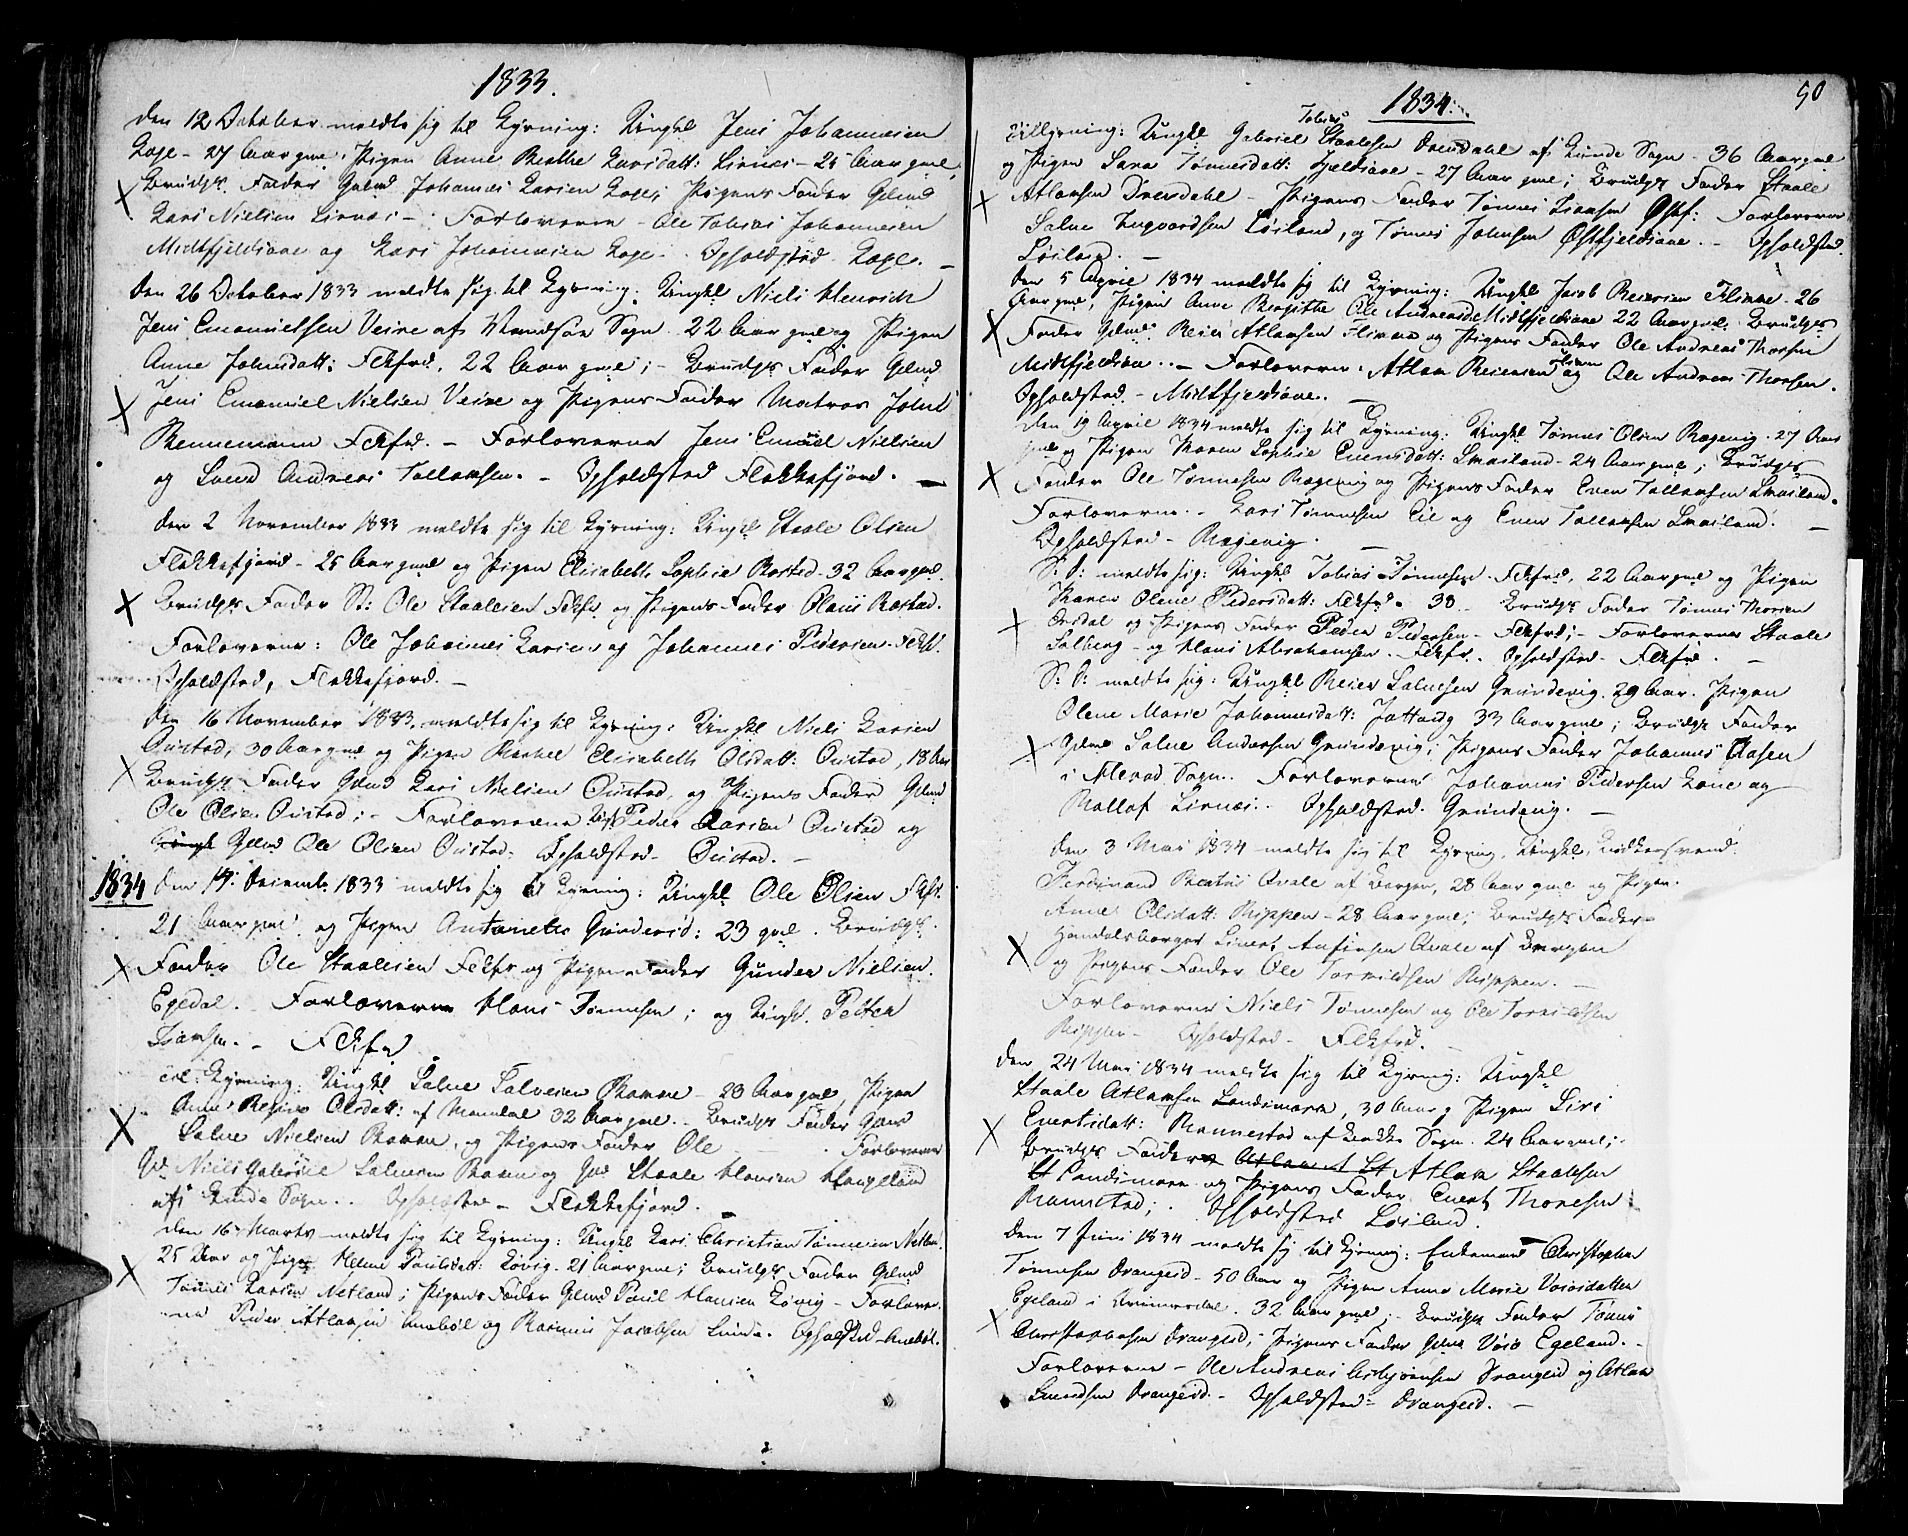 1833.
den 12 October meldte sig til Lysning: Ungkl Jens Johannesen
Loge - 27 Aar gml. Pigen Anne Berthe Larsdatt: Lirnæs - 25 Aar gml,
Brudgs Fader Gdmd Johannes Larsen Loge, Pigens Fader Gdmd
Lars Nielsen Lirnæs - Forloverne - Ole Tobias Johannesen
Midtfjeldsaae og Lars Johannesen Loge - Opholdsted Loge. -
Den 26 October 1833 meldte sig til Lysning: Ungkl Niels Henrich
Jens Emanuelsen Veire af Sogn 22 Aar gml og Pigen
Anne Johnsdatt: Flkfrd. 22 Aar gml; - Brudgs Fader Gdmd
Jens Emanuel Nielsen Veire og Pigens Fader Matros John
Rennemann Flkfrd. - Forloverne Jens Emauel Nielsen
og Svend Andreas Tollaksen. - Opholdsted Flekkefjord. -
den 2 November 1833 meldte sig til Lysning: Ungkl Staale Olsen
Flekkefjord - 25 Aar gml og Pigen Elisabeth Sophie Rostad - 32 Aar gml.
Brudgs Fader St: Ole Staalesen Flkfr og Pigens Fader Olaus Rostad.
Forloverne: Ole Johannes Larsen og Johannes Pedersen Flkfd.
Opholdsted, Flekkefjord. -
den 16 November 1833 meldte sig til Lysning: Ungkl Niels Larsen
Oustad, 30 Aar gml og Pigen Rachel Elisabeth Olsdatt: Oustad, 18 Aar
Brudgs Fader Gdmd Lars Nielsen Oustad, og Pigens Fader Gdmd
Ole Olsen Oustad; - Forloverne Ungk Peder Larsen Oustad og
Gdmd Ole Olsen Oustad. Opholdsted - Oustad. -
1834 den 14 Decemb. 1833 meldte sig til Lysning: Ungkl Ole Olsen Flkfr.
21 Aar gml og Pigen Antonette Gundersd: 23 gml. Brudgs
Fader Ole Staalesen Flkfr og Pigens Fader Gunder Nielsen
Egedal. Forloverne Hans Tønnesen; og Ungk. Petter
- Flkfrd
til Lysning: Ungkl Salve Salvesen Ramne - 23 Aar gml, Pigen
Anne Regine Olsdatt: af Mandal 32 Aar gml. Brudgs Fader Gdmd
Salve Nielsen Ramne, og Pigens Fader Ole - Forloverne
Gd. Niels Gabriel Salvesen Ramne og Gmd Staale Hansen Haugeland
af Lunde Sogn. Opholdsted - Flekkefjord.
den 16 Marts meldte sig til Lysning: Ungkl Lars Christian Tønnesen Netland.
25 Aar og Pigen Helene Paulsdatt: Løvig - 21 Aar gml; Brudgs Fader Gdmd
Tønnes Larsen Netland; Pigens Fader Gdmd Paul Hansen Løvig - Forlover
ne Peder Atlaksen Anebøl og Rasmus Jacobsen Lunde. Opholdsted Anebøl.
50
1834.
Tobias
til Lysning: Ungkl Gabriel Staalesen Drevdahl af Lunde Sogn - 36 Aar gml
og Pigen Sara Tønnesdatt: Fjeldsaae - 27 Aar gml; Brudgs Fader Staale
Atlaksen Drevdahl - Pigens Fader Tønnes Østf: Forloverne
Salve Ingvardsen Løiland, og Tønnes Johnsen Østfjeldsaae. - Opholdsted.
Løiland. -
den 5 April 1834 meldte sig til Lysning: Ungkl Jacob Reiersen Flikke - 26
Aar gml, Pigen Anne Birgitthe Ole Andreasd. Midtfjeldsaae 22 Aar gml. Brudgs
Fader Gdmd Reier Atlaksen Flikke og Pigens Fader Ole Andreas Thorsen
Midtfjeldsaae. - Forloverne. Atlak Reiersen Flikke og Ole Andreas Thorsen.
Opholdsted. - Midtfjeldsaae. -
den 19 April 1834 meldte sig til Lysning: Ungkl Tønnes Olsen Rægevig - 27 Aar
gml og Pigen Maren Sophie Evensdatt: - 24 Aar gml; Brudgs
Fader Ole Tønnesen Rægevig og Pigens Fader Even Tollaksen
Forloverne - Lars Tønnesen Eie og Even Tollaksen
Opholdsted - Rægevig. -
S: D: meldte sig: Ungkl Tobias Tønnesen Flkfrd, 22 Aar gml og Pigen
Maren Olene Pedersdatt: Flkfrd. 38 Brudgs Fader Tønnes Thorsen
og Pigens Fader Peder Pedersen - Flkfrd; - Forloverne Staale
Solberg - og Hans Abrahamsen Flkfr. Opholdsted - Flkfrd. -
S: D: meldte sig: Ungkl Reier Salvesen Grundevig 29 Aar. Pigen
Olene Marie Johannesdatt: 33 Aar gml; Brudgs Fader
Gdmd Salve Andersen Grundevig; Pigens Fader Johannes Aasen
i Sogn. Forloverne Johannes Pedersen Lone og
Rollof Lirnæs. Opholdsted. Grundevig. -
den 3 Mai 1834 meldte sig til Lysning. Ungkl, Bødkersvend
Ferdinand Beatus Qvale af Bergen, 28 Aar gml og Pigen
Anne Olsdatt: Rippen - 28 Aar gml; Brudgs Fader
Handelsborger Sivert Anfinsen Qvale af Bergen
og Pigens Fader Ole Torkildsen Rippen. -
Forloverne Niels Tønnesen og Ole Torkildsen
Rippen - Opholdsted - Flkfrd. -
den 24 Mai 1834 meldte sig til Lysning: Ungkl
Staale Atlaksen Landsmark, 30 Aar og Pigen Siri
Evertsdatt: Rannestad af Bakke Sogn. 24 Aar gml; -
Brudgs Fader Atlak Staalesen
Landsmark og Pigens Fader. Evert Thoresen
Rannestad; - Opholdsted Løiland.
den 7 Juni 1834 meldte sig til Lysning: Enkemand Christopher
Tønnesen Drangeid - 50 Aar og Pigen Anne Marie
Egeland i Qvinnesdal. 32 Aar gml; - Brudgs Fader Tønnes
Christophersen Drangeid, Pigens Fader Gdmd Egeland. -
Forloverne - Ole Andreas Asbjørnsen Drangeid og Atlak
Svendsen Drangeid - Opholdsted - Drangeid. -